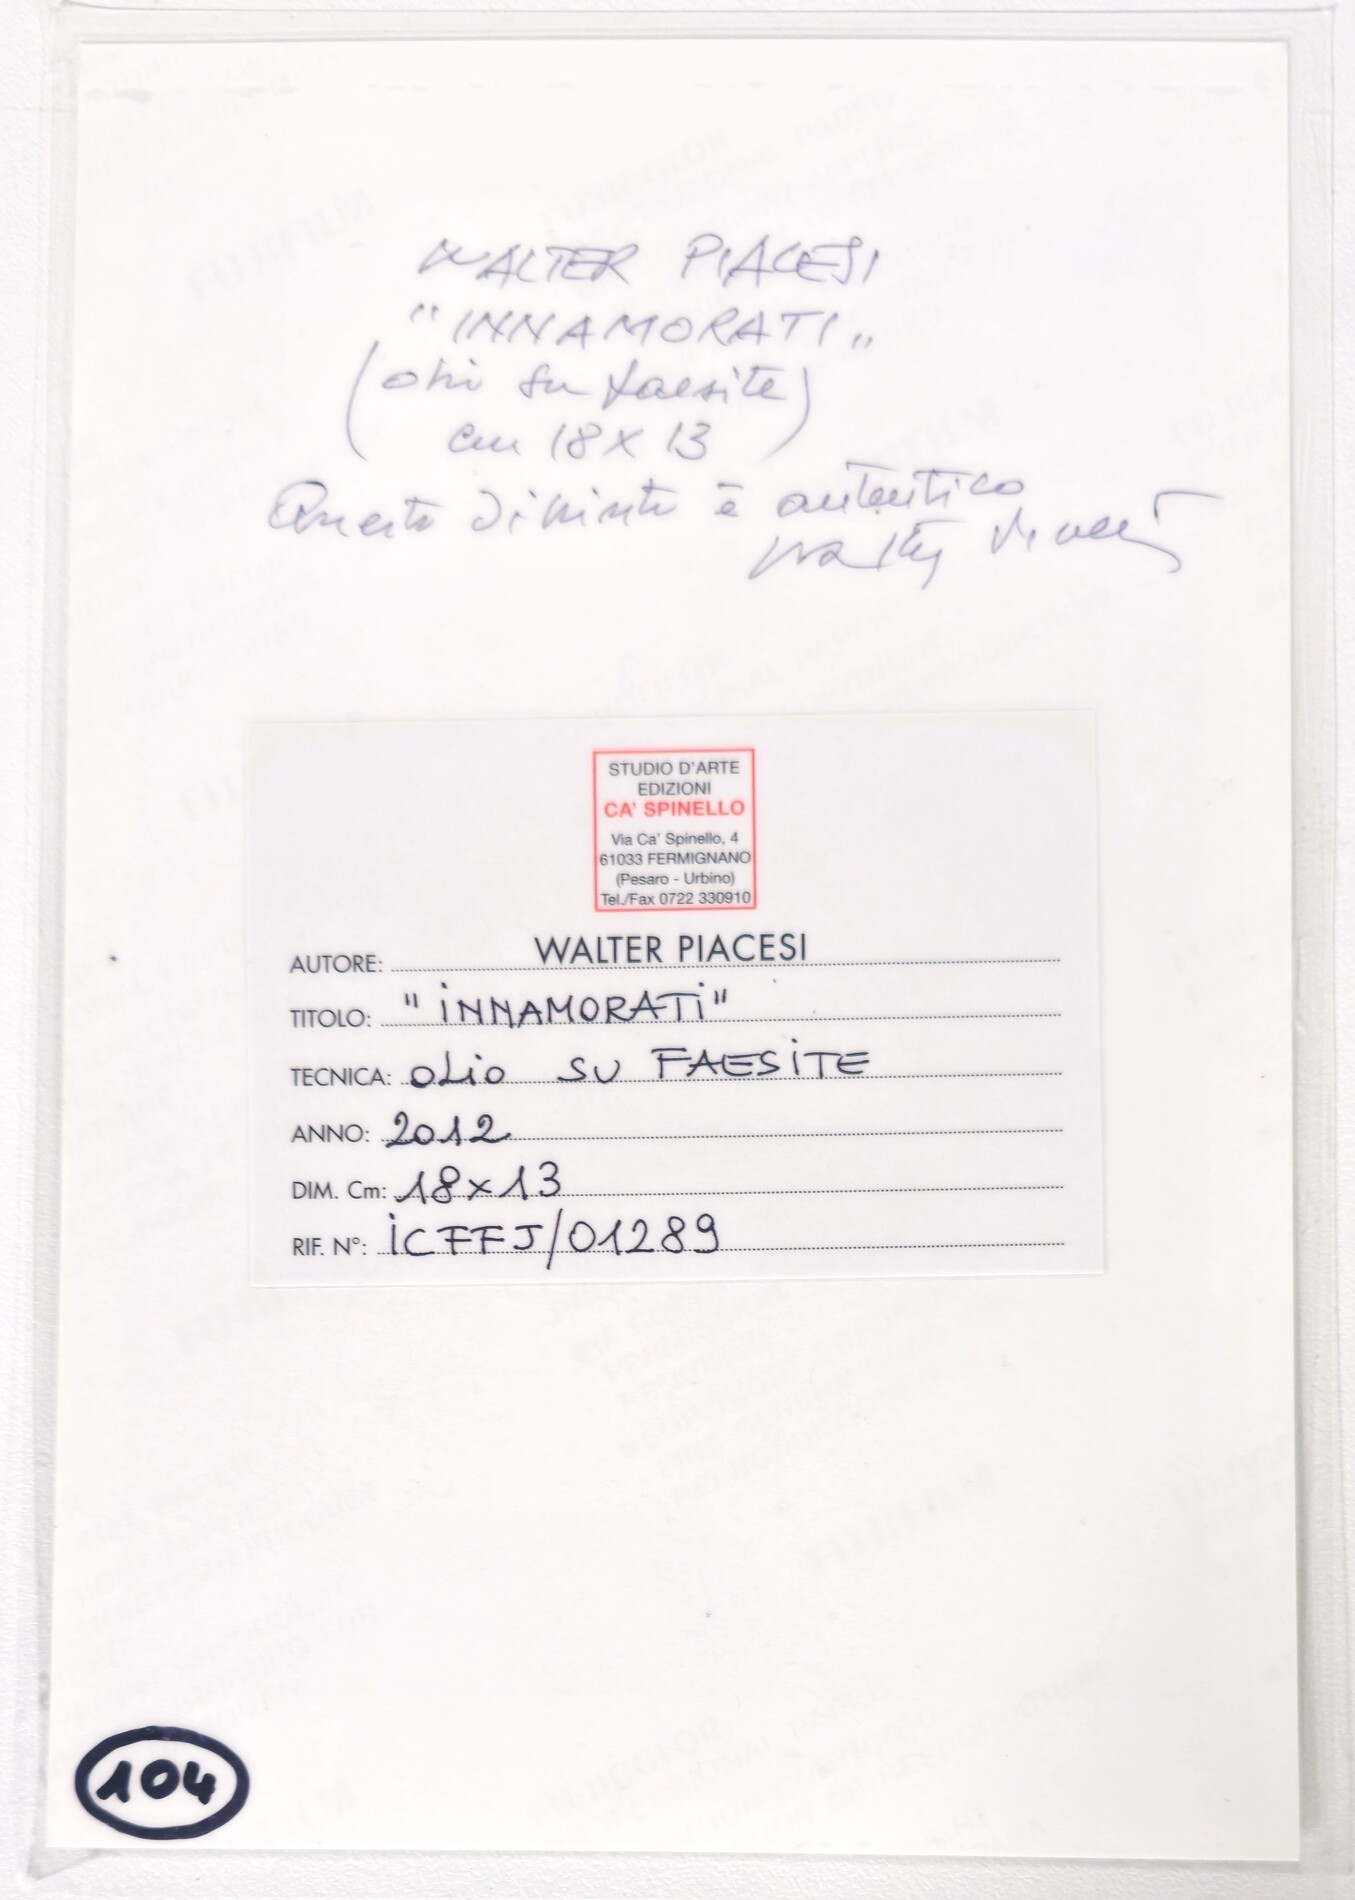 WALTER PIACESI
"INNAMORATI"
(olio su faesite)
cm 18x13
Questo dipinto è autentico
Walter Piacesi
STUDIO D'ARTE
EDIZIONI
CA' SPINELLO
Via Ca' Spinello, 4
61033 FERMIGNANO
(Pesaro - Urbino)
Tel./Fax 0722 330910
AUTORE: WALTER PIACESI
TITOLO: "INNAMORATI"
TECNICA: OLIO SU FAESITE
ANNO: 2012
DIM. Cm: 18x13
RIF. N°: ICFFJ/01289
104